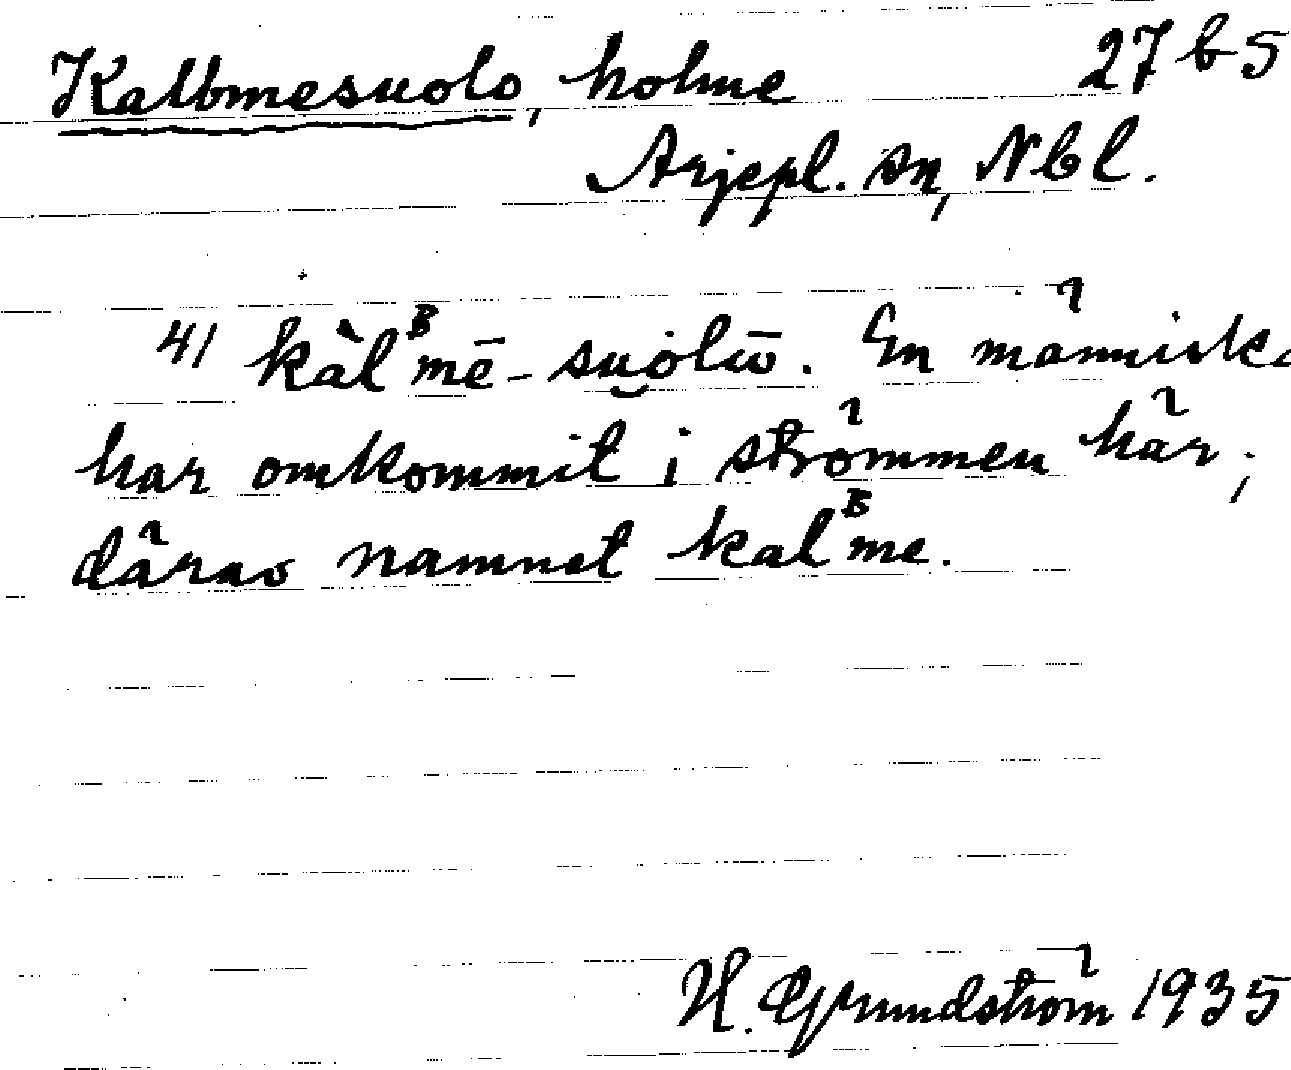 Kalbmesuolo, holme 27 b 5
Arjepl. sn, Nbl.
41 kàlᴮmē-su̯ȯlu̅. En människa
har omkommit i strömmen här;
därav namnet kalᴮme.
H. Grundström 1935